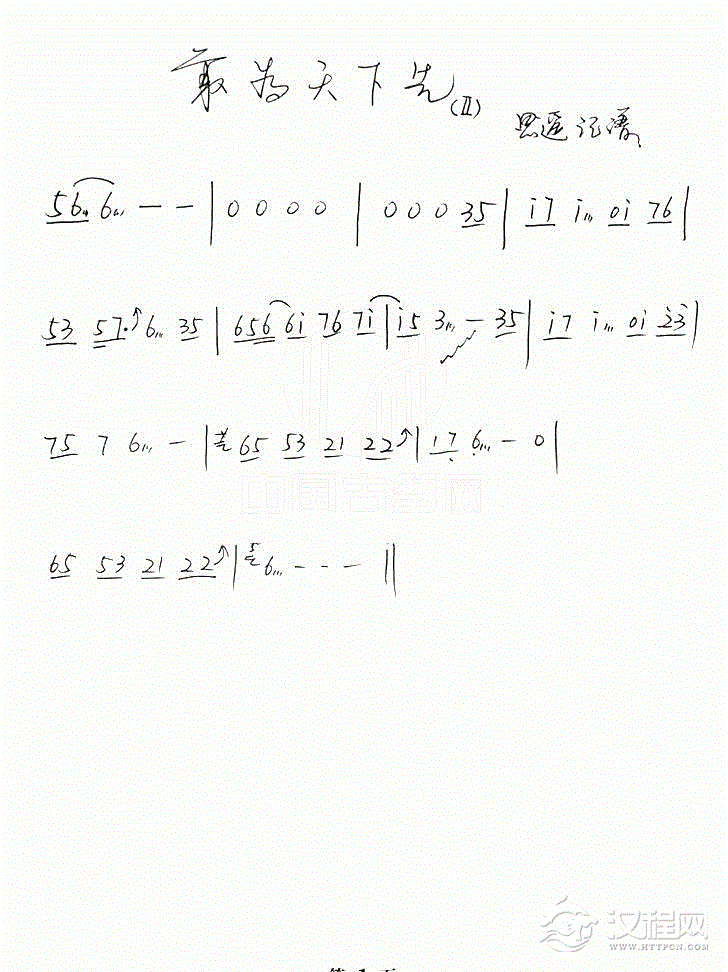 敢为天下先(II)
思遥记谱
56 6 - - | 0 0 0 0 | 0 0 0 35 | i7 i 0i 76 |
53 57· 6 35 | 656 6i 76 7i | i5 3 - 35 | i7 i 0i 23 |
75 7 6 - | 65 53 21 22 | 17 6 - 0 |
65 53 21 22 | 5 6 - - - ||
中国古筝网
汉程网
WWW.HTTPCN.COM
第 1 页